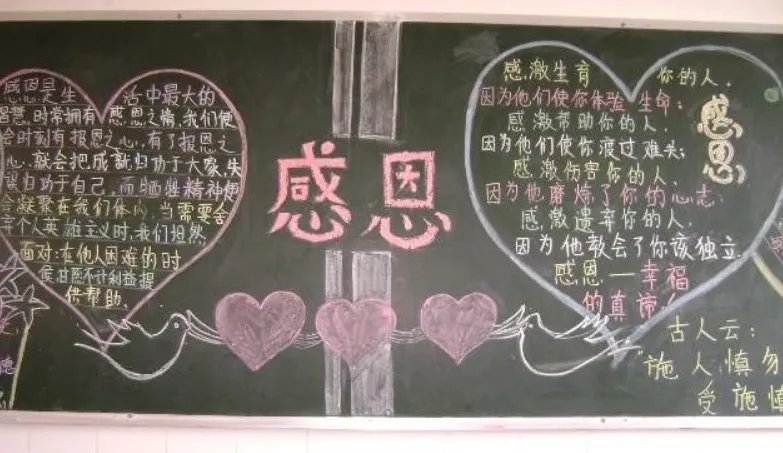 感恩是生活中最大的
智慧,时常拥有感恩之情,我们便
会时刻有报恩之心,有了报恩之
心,就会把成就归功于大家,失
误归功于自己,而牺牲精神便
会凝聚在我们体内,当需要舍
弃个人英雄主义时,我们坦然
面对:在他人困难的时
侯甘愿不计利益提
供帮助。
德
感恩
感激生育你的人,
因为他们使你体验生命;
感激帮助你的人,
因为他们使你渡过难关;
感激伤害你的人,
因为他磨炼了你的心志;
感激遗弃你的人,
因为他教会了你该独立.
感恩—幸福
的真谛
感恩
古人云:
"施人慎勿
受施慎